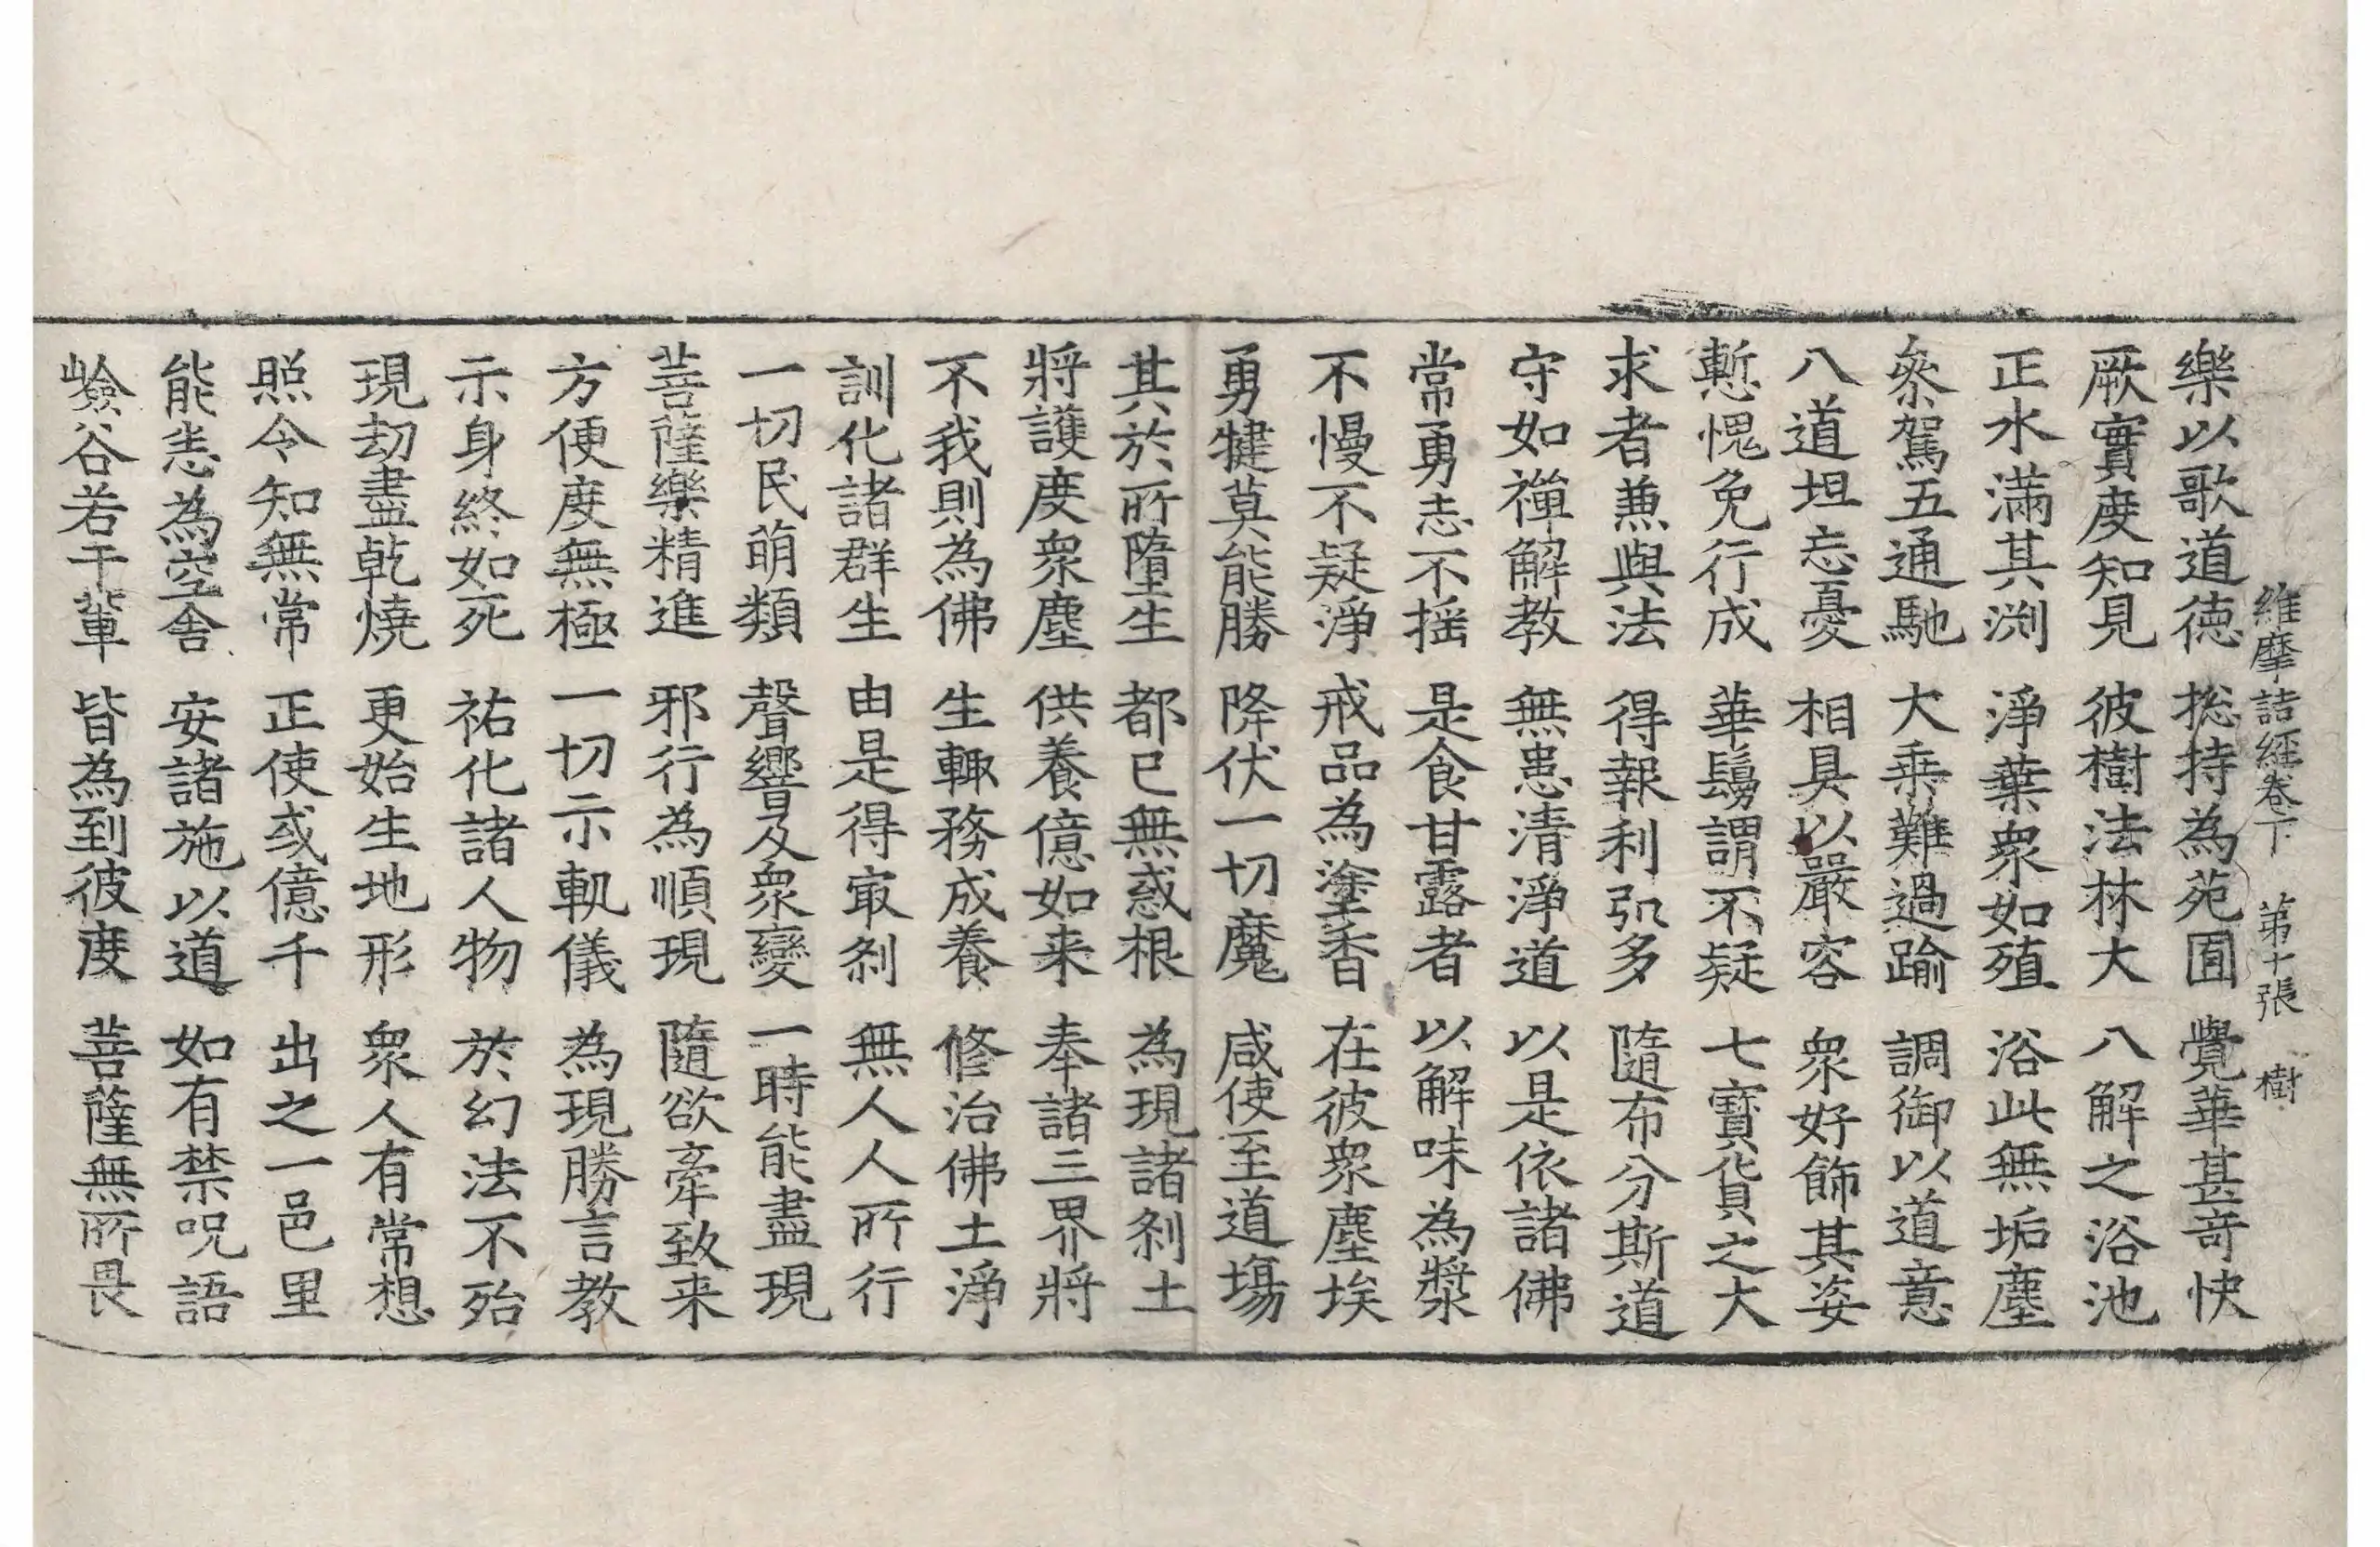 維摩詰経卷下 第十張 樹
樂以歌道徳 捴持為苑囿 覺華甚竒快
厥實度知見 彼樹法林大 八解之浴池
正水滿其渕 淨葉衆如殖 浴此無垢塵
叅駕五通馳 大乗難過踰 調御以道意
八道坦忘憂 相具以嚴容 衆好飾其姿
慙愧免行成 華鬘謂不疑 七寳貨之大
求者兼與法 得報利弘多 隨布分斯道
守如禪解教 無患清淨道 以是依諸佛
常勇志不摇 是食甘露者 以解味為漿
不慢不疑淨 戒品為塗香 在彼衆塵埃
勇犍莫能勝 降伏一切魔 咸使至道場
其於所墮生 都已無惑根 為現諸刹土
將護度衆塵 供養億如来 奉諸三界將
不我則為佛 生輙務成養 修治佛土淨
訓化諸群生 由是得㝡刹 無人人所行
一切民萌類 聲響及衆變 一時能盡現
菩薩樂精進 邪行為順現 隨欲牽致来
方便度無極 一切示軌儀 為現勝言教
示身終如死 祐化諸人物 於幻法不殆
現劫盡乾燒 更始生地形 衆人有常想
照令知無常 正使或億千 出之一邑里
能恙為空舍 安諸施以道 如有禁呪語
嶮谷若干輩 皆為到彼度 菩薩無所畏